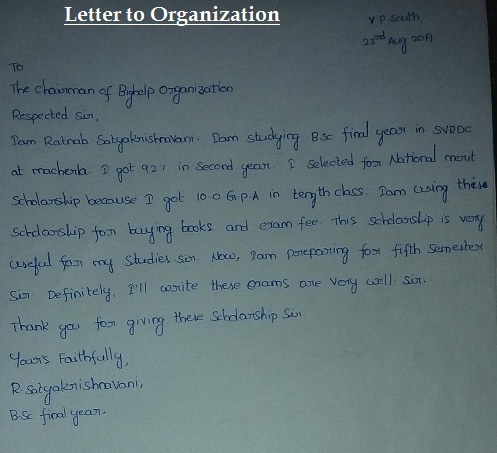 Letter to Organization
V P South,
23rd Aug 2019.
To
The chairman of Bighelp Organization
Respected Sir,
Iam Ratnab Satyakrishnavani. Iam studying B.sc final year in SVRDC
at macherla. I got 92% in Second year. I Selected for National merit
Scholarship because I got 10.0 G.P.A in tength class. Iam using these
Scholarship for buying books and exam fee. This Scholarship is very
useful for my Studies sir Now, Iam preparing for fifth Semester
Sir. Definitely, I'll write these exams are very well. Sir.
Thank you for giving these Scholarship Sir.
Yours Faithfully,
R. Satyakrishnavani,
B.Sc final year.